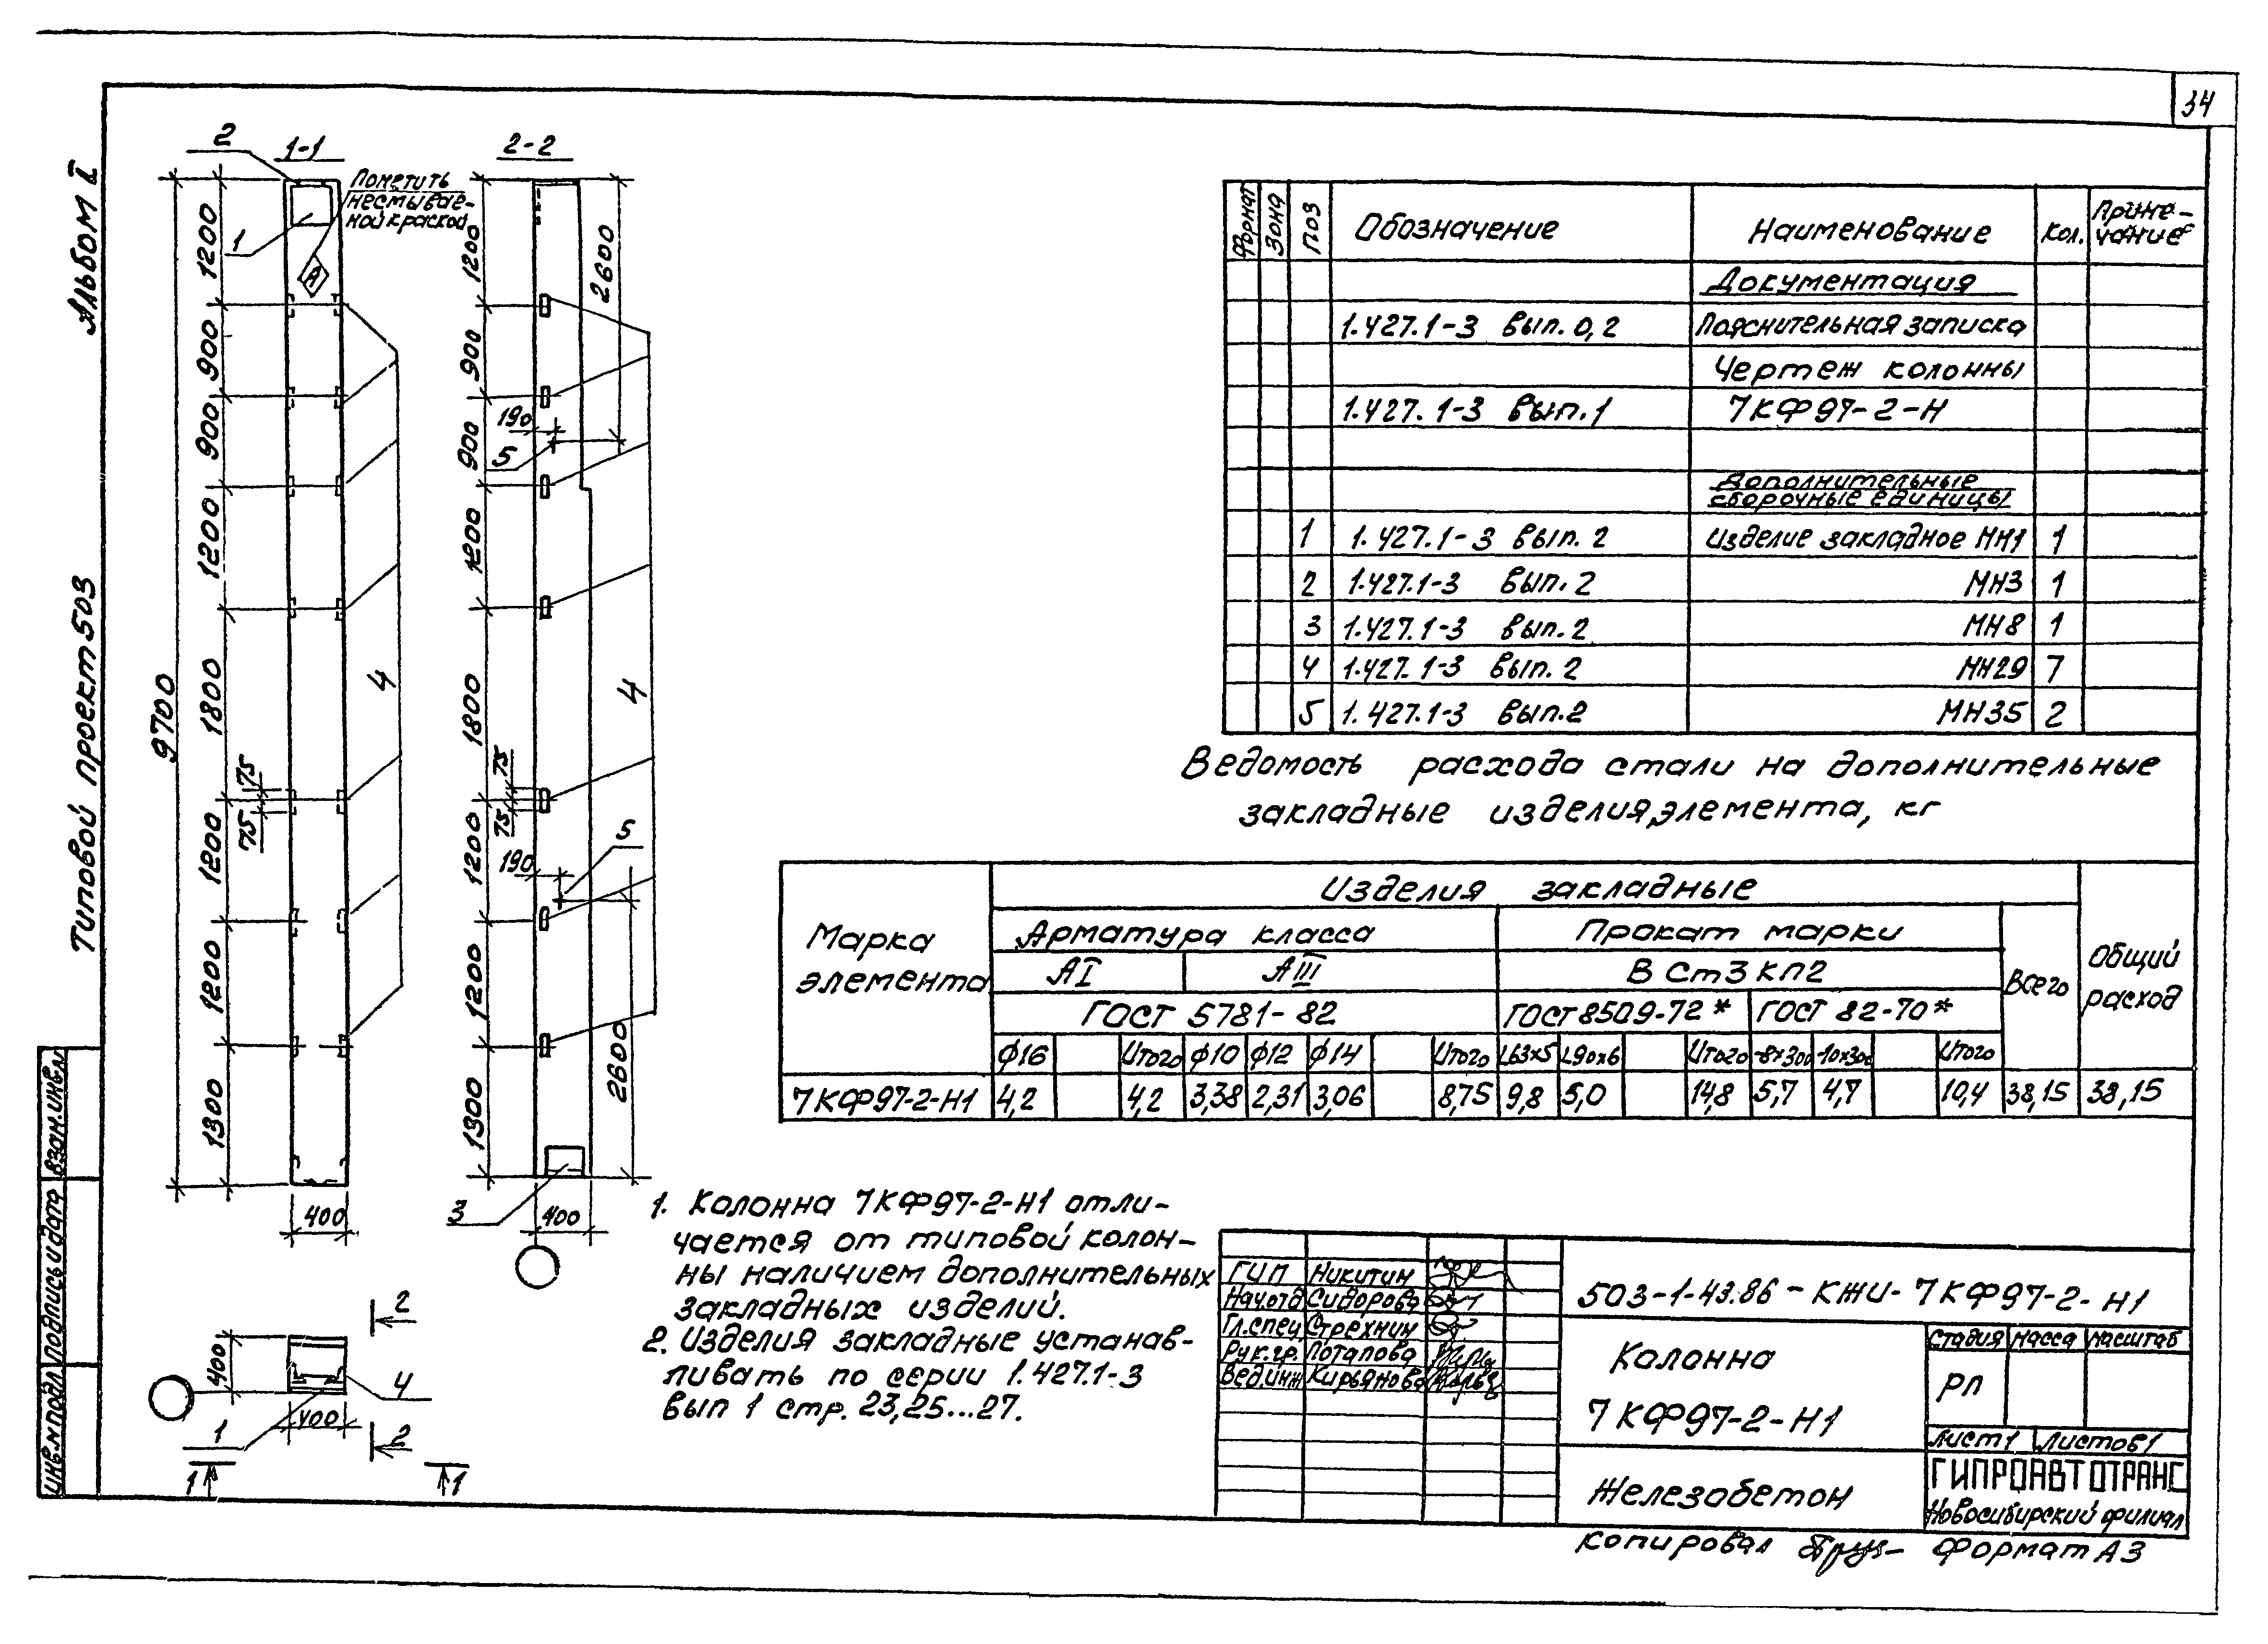 34
Альбом I
Типовой проект 503
Взам.инв.№
Подпись и дата
Инв.№подл
2
1-1
Пометить
несмывае-
ной краской
1
А
1200
900
900
1200
1800
1200
1200
1300
9700
75
75
4
400
2-2
1200
900
900
1200
1800
1200
1200
1300
2600
190
5
75
75
190
5
4
2600
3
400
2
400
4
400
1
2
1
1
Формат
Зона
Поз
Обозначение
Наименование
Кол.
Приме-
чание
Документация
1.427.1-3 вып. 0,2 Пояснительная записка
Чертеж колонны
1.427.1-3 вып.1 7КФ97-2-Н
Дополнительные
сборочные единицы
1 1.427.1-3 вып. 2 Изделие закладное МН1 1
2 1.427.1-3 вып. 2 МН3 1
3 1.427.1-3 вып. 2 МН8 1
4 1.427.1-3 вып. 2 МН29 7
5 1.427.1-3 вып.2 МН35 2
Ведомость расхода стали на дополнительные
закладные изделия, элемента, кг
Марка
элемента
Изделия закладные
Арматура класса
Прокат марки
АI
АIII
ВСт3кп2
ГОСТ 5781-82
ГОСТ 8509-72*
ГОСТ 82-70*
Всего
Общий
расход
ϕ16 Итого ϕ10 ϕ12 ϕ14 Итого L63x5 L90x6 Итого -8x300 -10x300 Итого
7КФ97-2-Н1 4,2 4,2 3,38 2,31 3,06 8,75 9,8 5,0 14,8 5,7 4,7 10,4 38,15 38,15
1. Колонна 7КФ97-2-Н1 отли-
чается от типовой колон-
ны наличием дополнительных
закладных изделий.
2. Изделия закладные устанав-
ливать по серии 1.427.1-3
вып 1 стр. 23,25...27.
ГИП Никитин
Нач.отд Сидорова
Гл.спец Стрехнин
Рук.гр. Потапова
Вед.инж Кирьянова
503-1-43.86-КЖИ-7КФ97-2-Н1
Колонна
7КФ97-2-Н1
Стадия Масса Масштаб
РП
Лист 1 Листов 1
Железобетон
ГИПРОАВТОТРАНС
Новосибирский филиал
Копировал
Формат А3